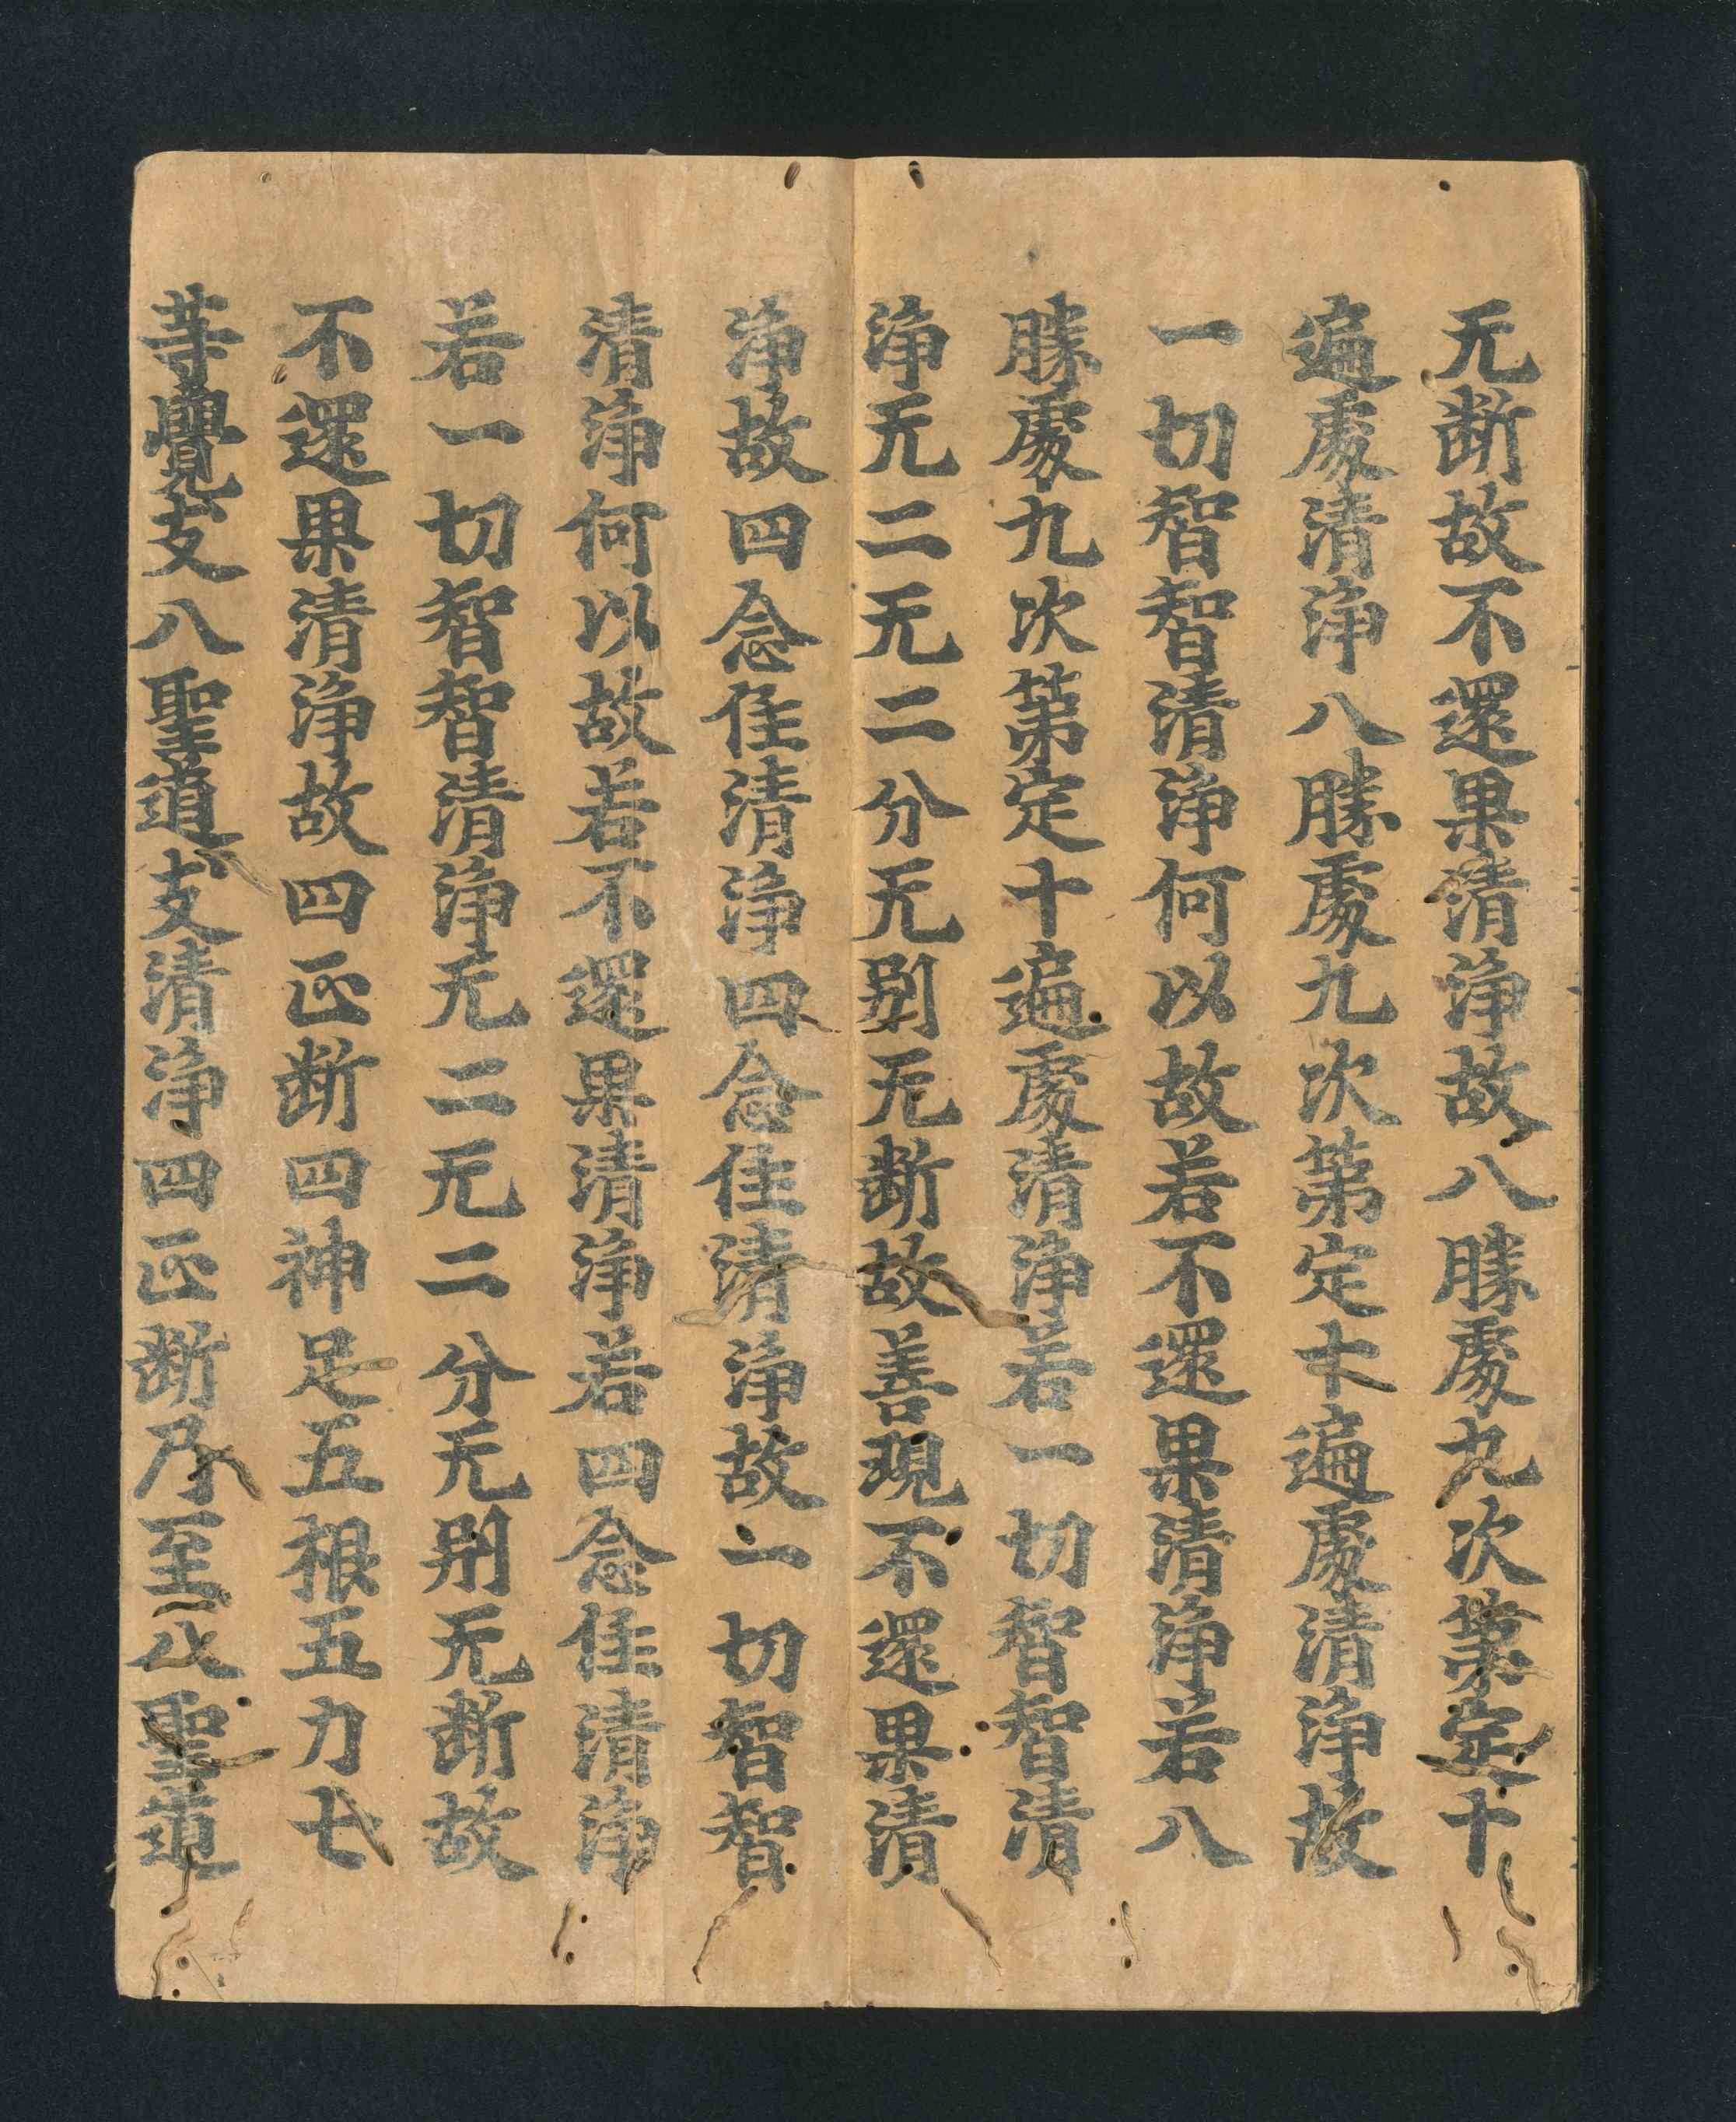 无断故不還果清淨故八勝處九次第定十
遍處清淨八勝處九次第定十遍處清淨故
一切智智清淨何以故若不還果清淨若八
勝處九次第定十遍處清淨若一切智智清
淨无二无二分无別无断故善現不還果清
淨故四念住清淨四念住清淨故一切智智
清淨何以故若不還果清淨若四念住清淨
若一切智智清淨无二无二分无別无断故
不還果清淨故四正断四神足五根五力七
等覺支八聖道支清淨四正断乃至八聖道